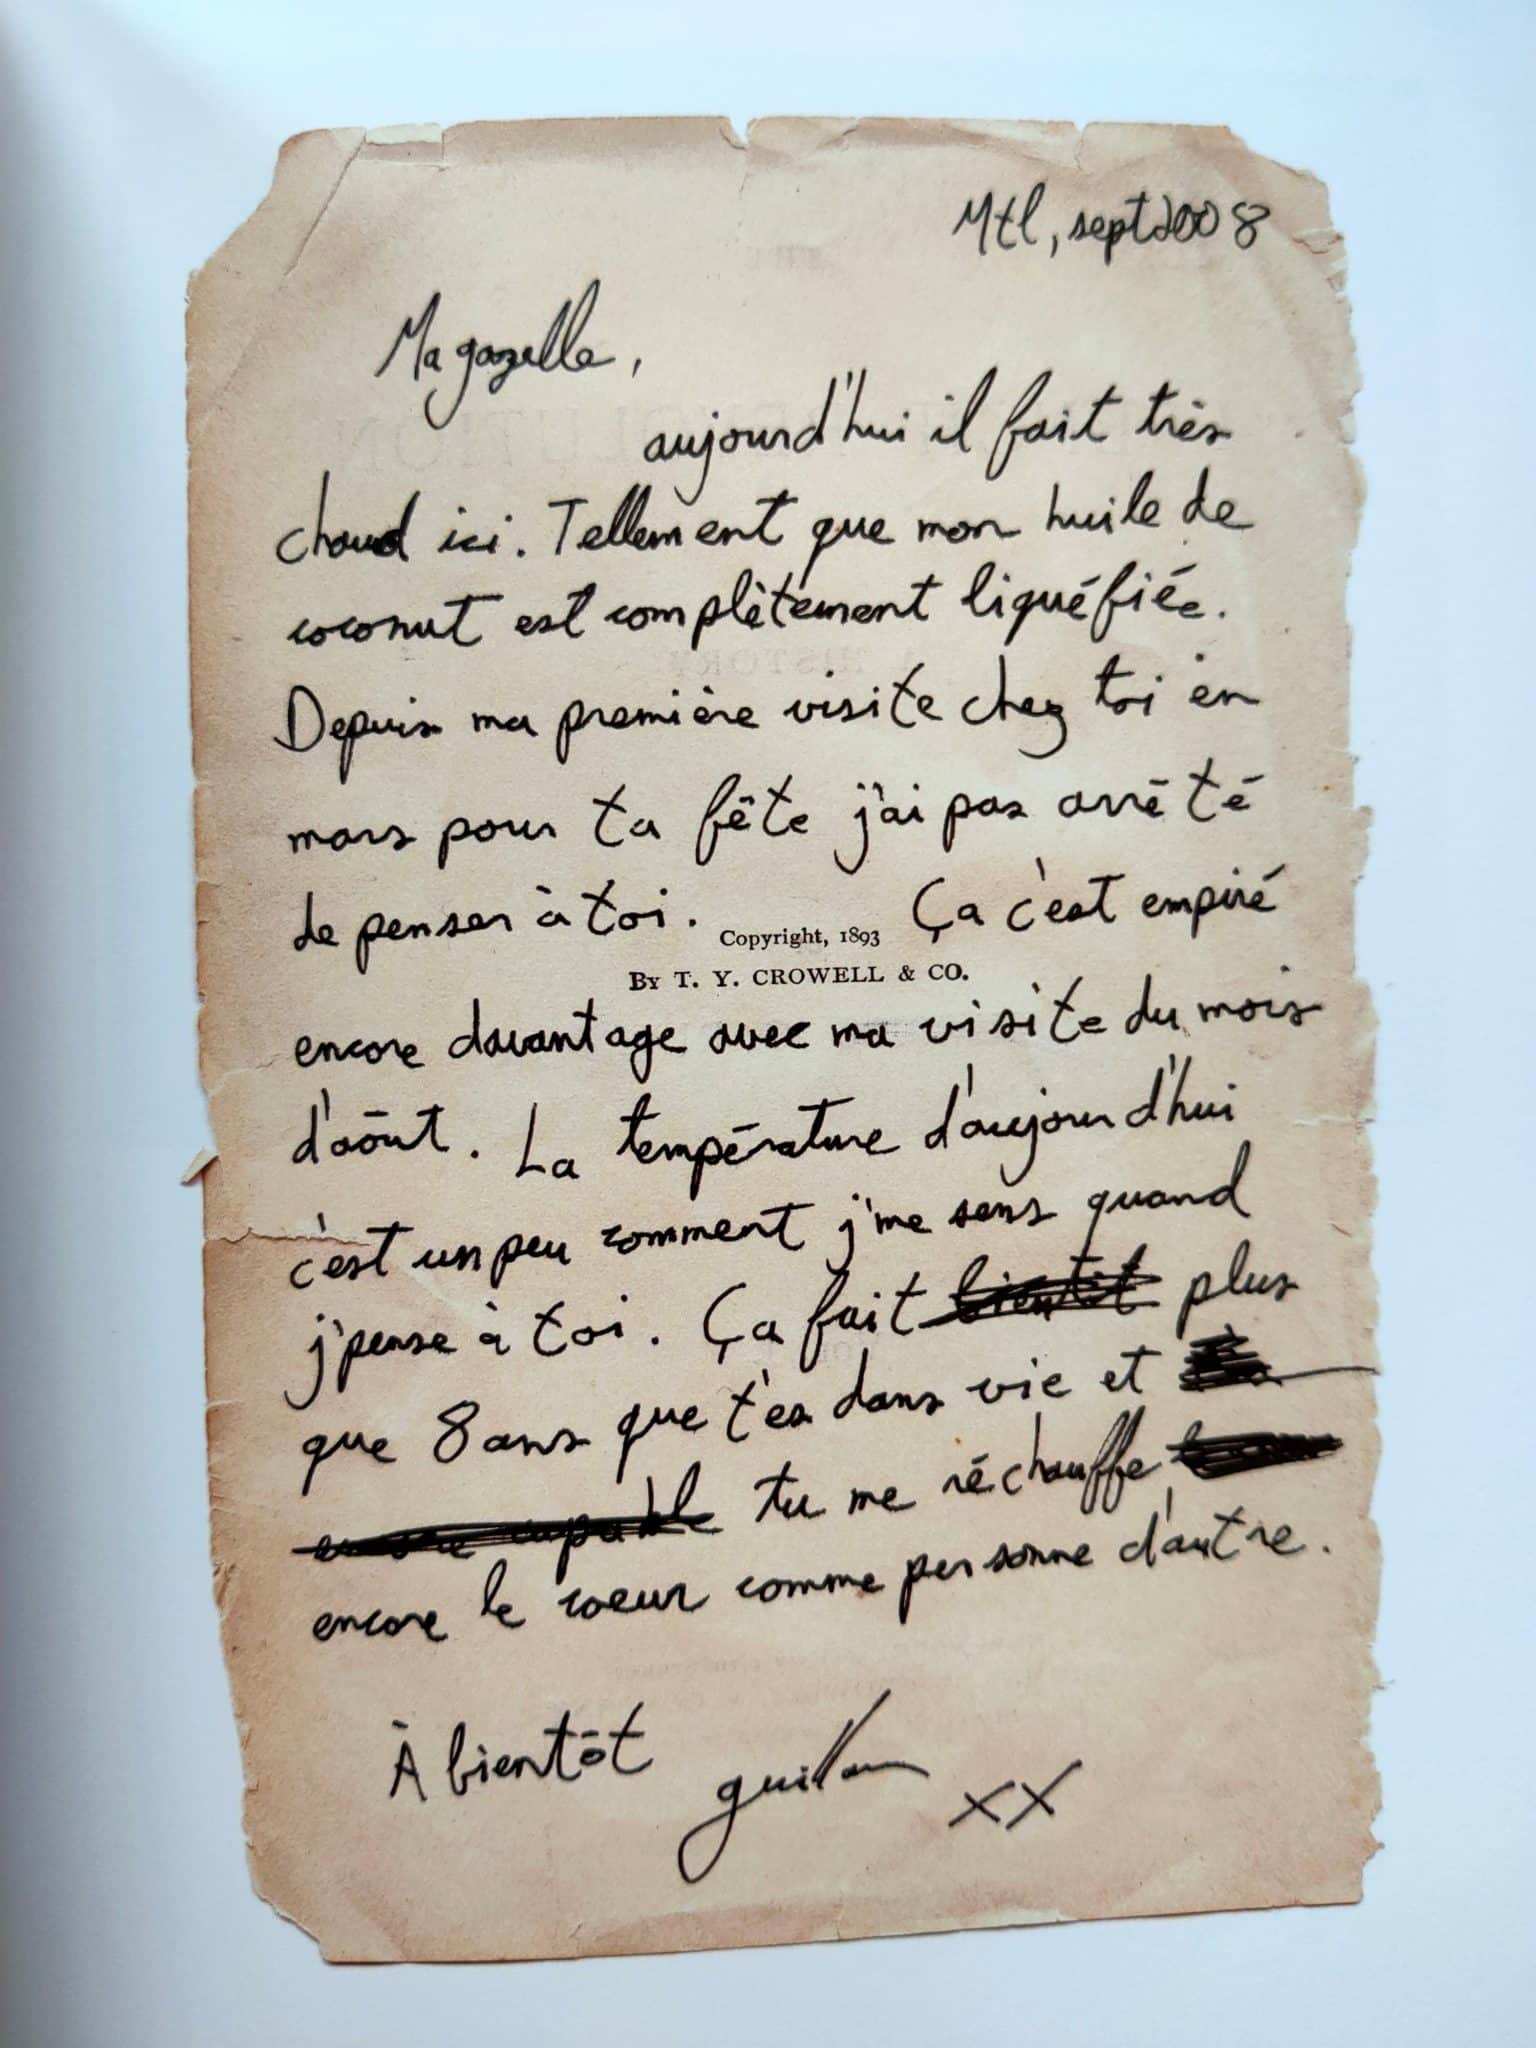 Mtl, sept 2008
Ma gazelle,
aujourd'hui il fait très
chaud ici. Tellement que mon huile de
coconut est complètement liquéfiée.
Depuis ma première visite chez toi en
mars pour ta fête j'ai pas arrêté
de penser à toi. Ça c'est empiré
Copyright, 1893
By T. Y. CROWELL & CO.
encore davantage avec ma visite du mois
d'août. La température d'aujourd'hui
c'est un peu comment j'me sens quand
j'pense à toi. Ça fait bientôt plus
que 8 ans que t'es dans vie et
encore capable tu me réchauffe
encore le coeur comme personne d'autre.
À bientôt
xx